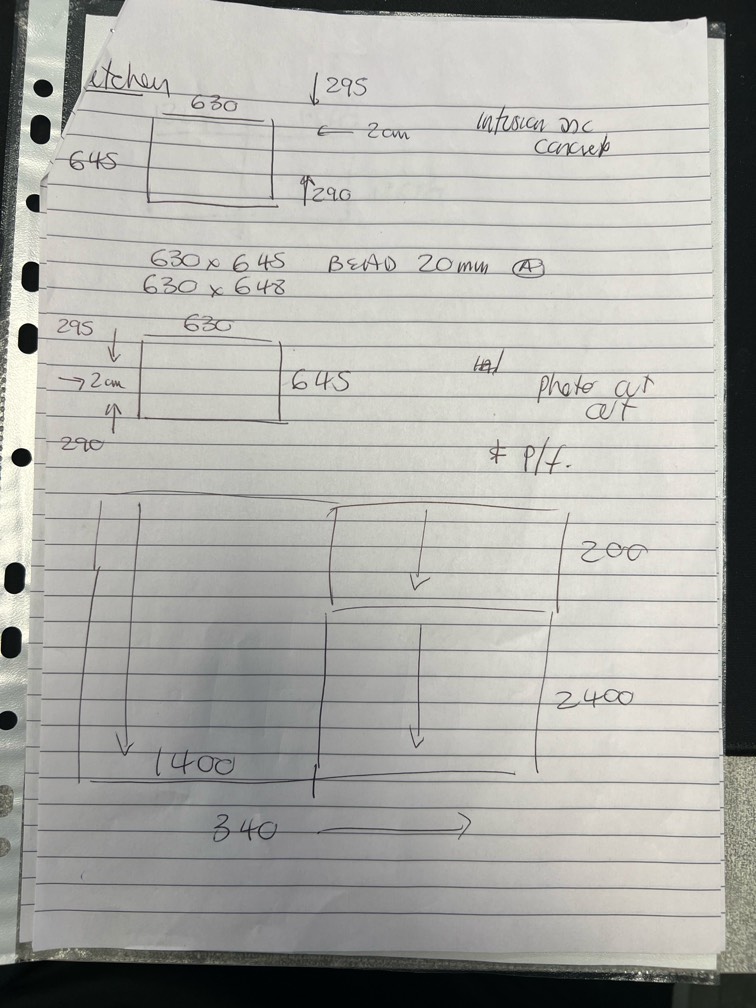 itchen
630
↓295
← 2cm
645
↑290
concrete
630 x 645 BEAD 20mm A
630 x 648
295 ↓
630
→ 2cm
645
↑
290
photo cut
out
* P/f.
200
2400
1400
340 →